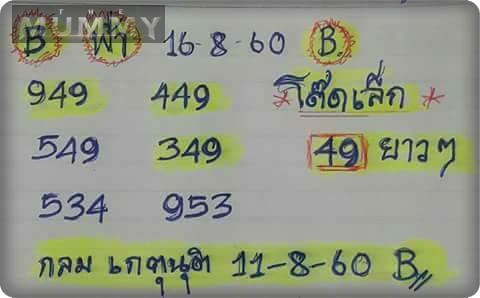 THE
MUMMY
B ฟ้า 16-8-60 B.
949 449 *โต๊ดเล็ก*
549 349 49 ยาวๆ
534 953
กลม เกตุนุติ 11-8-60 B